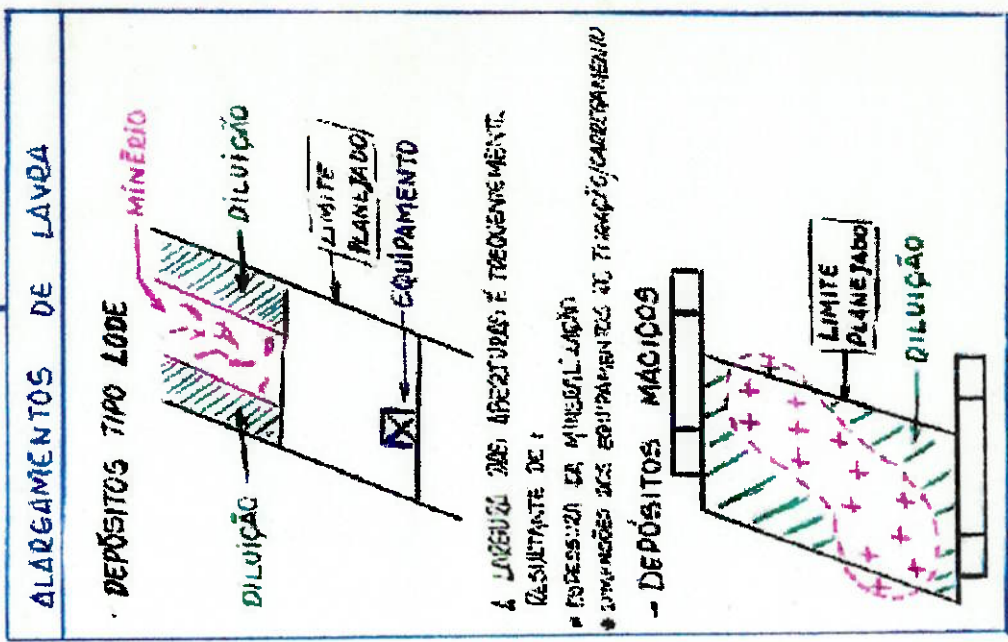 ALARGAMENTOS DE LAVRA
· DEPÓSITOS TIPO LODE
MINÉRIO
DILUIÇÃO
DILUIÇÃO
LIMITE
PLANEJADO
EQUIPAMENTO
A LARGURA DAS ABERTURAS É FREQUENTEMENTE
RESULTANTE DE:
* ESPESSURA DA MINERALIZAÇÃO
* DIMENSÕES DOS EQUIPAMENTOS DE PERFURAÇÃO/CARREGAMENTO
- DEPÓSITOS MACIÇOS
LIMITE
PLANEJADO
DILUIÇÃO